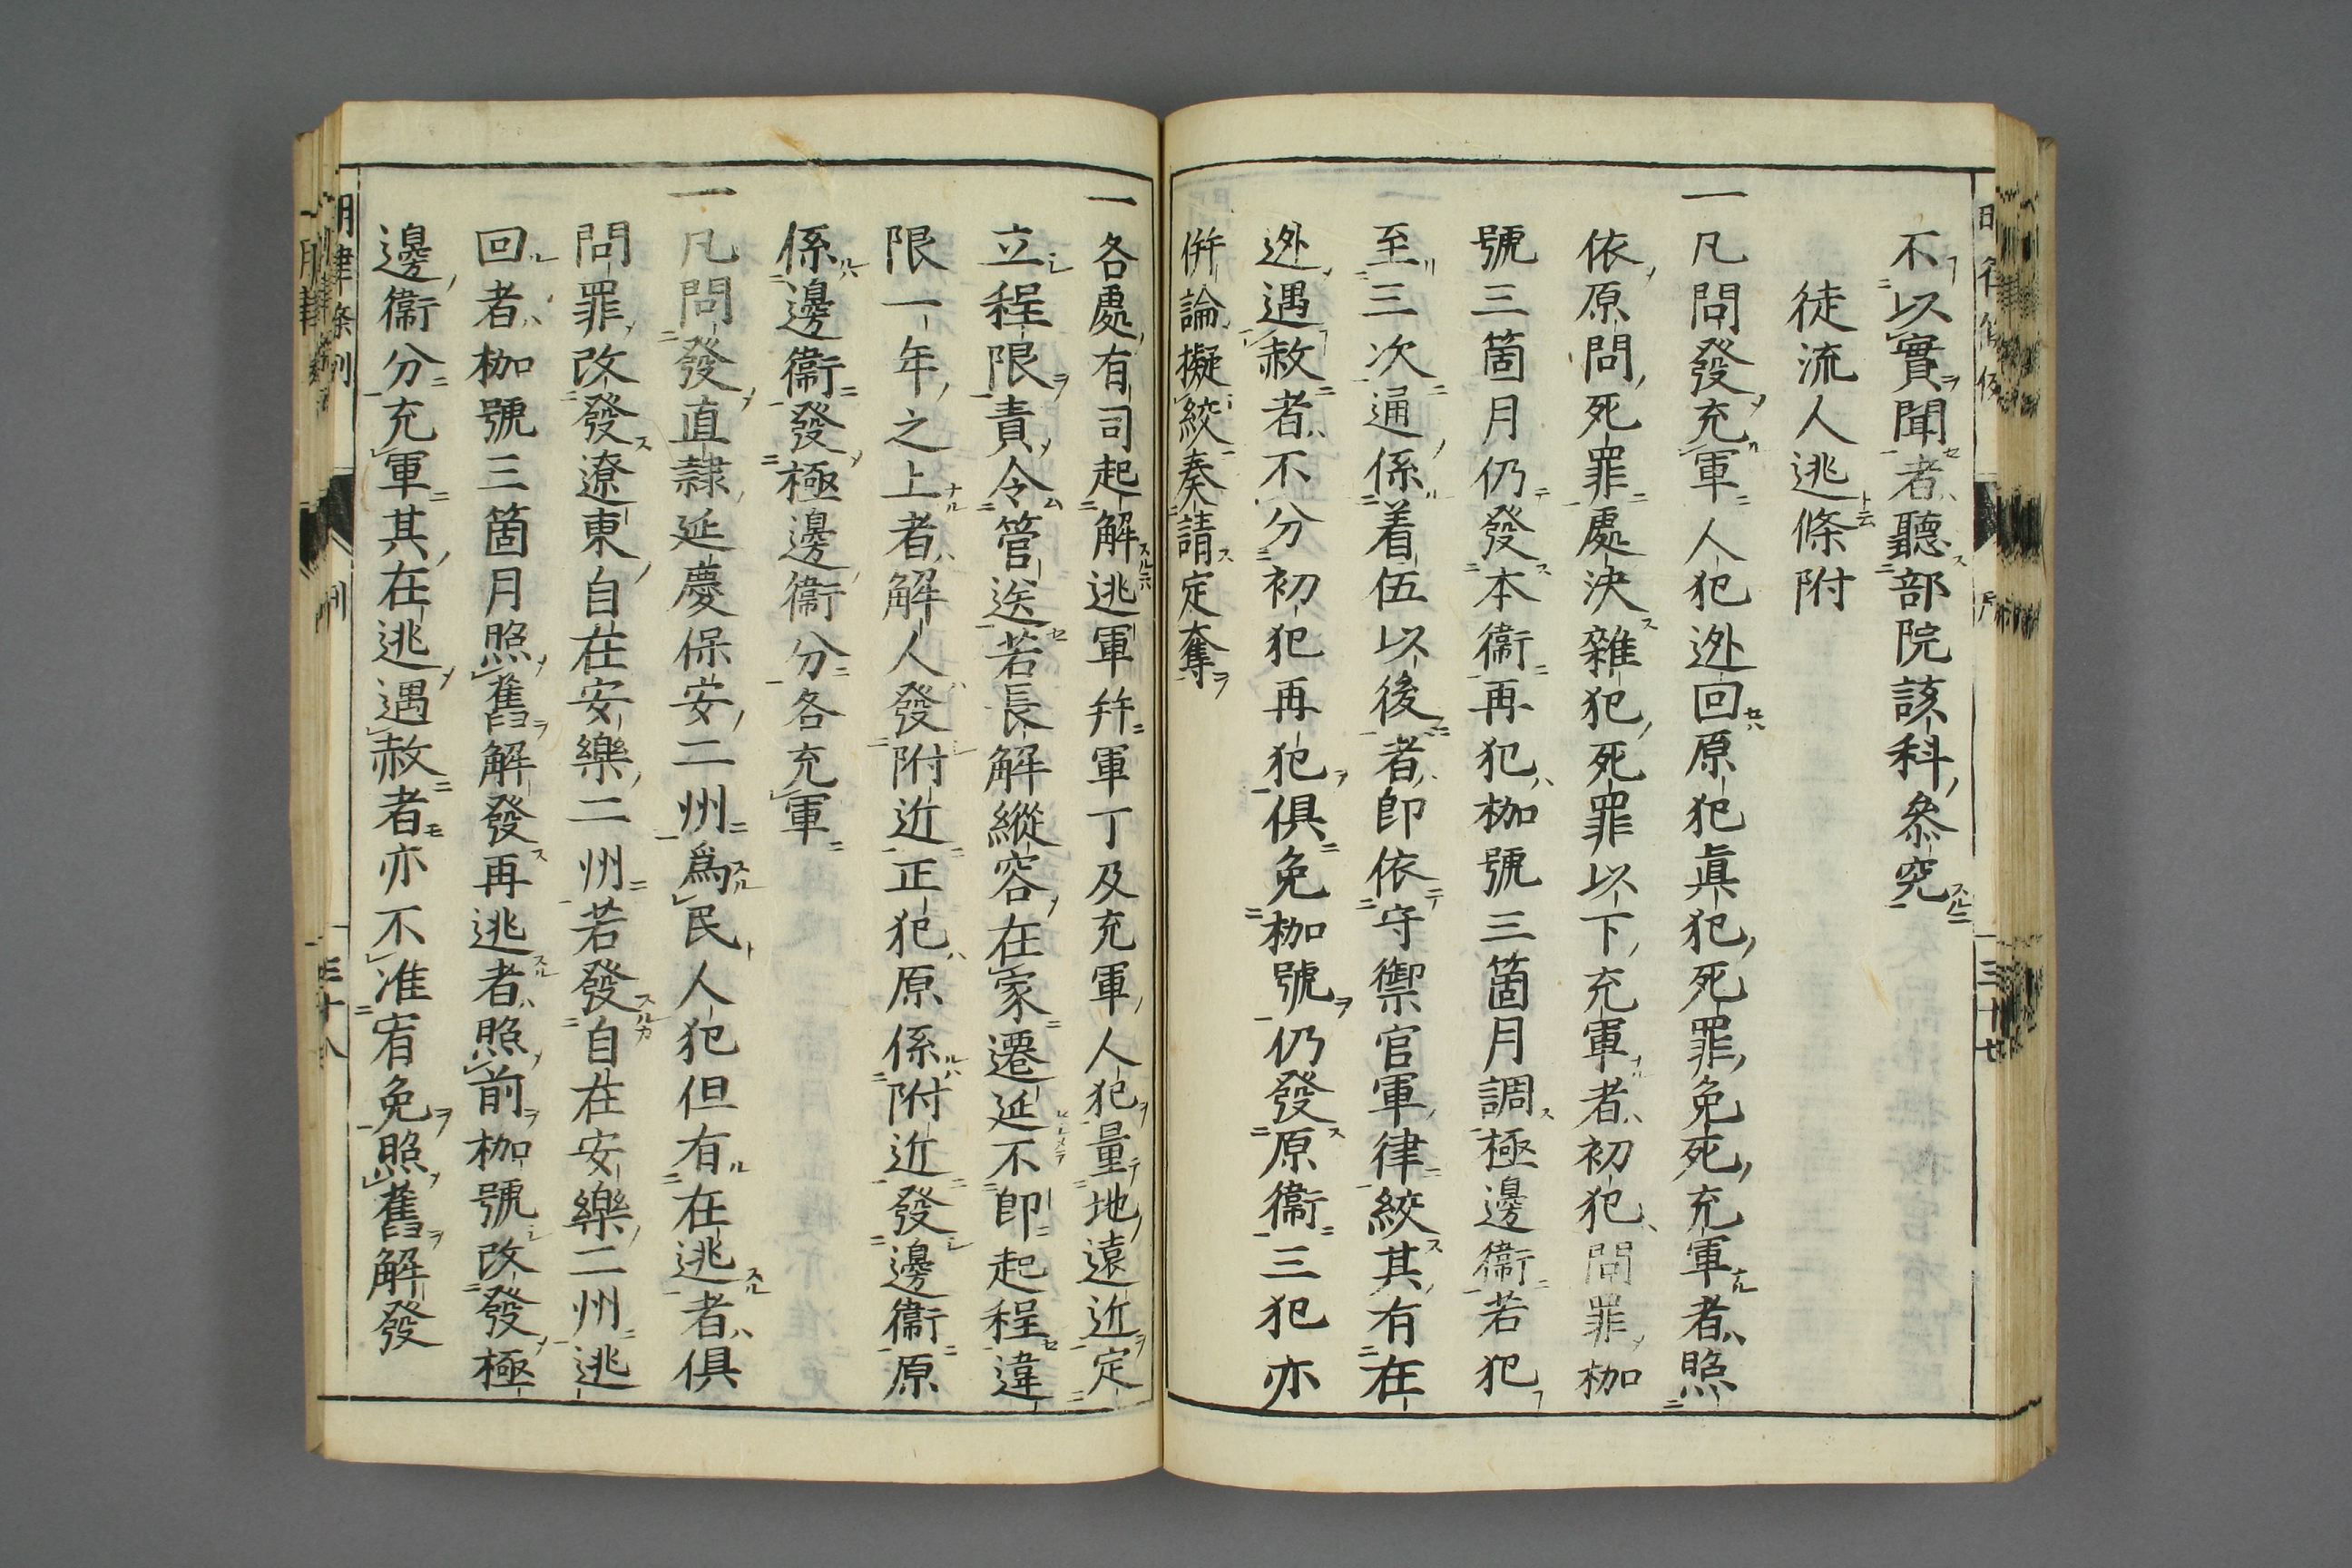 不以實聞者聽部院該科參究
徒流人逃條附
一凡問發充軍人犯逊回原犯眞犯死罪免死充軍者照
依原問死罪處決雜犯死罪以下充軍者初犯問罪枷
號三箇月仍發本衞再犯枷號三箇月調極邊衞若犯
至三次通係着伍以後者卽依守禦官軍律絞其有在
逊遇赦者不分初犯再犯俱免枷號仍發原衞三犯亦
倂論擬絞奏請定奪
一各處有司起解逃軍幷軍丁及充軍人犯量地遠近定
立程限責令管送若長解縱容在家遷延不卽起程違
限一年之上者解人發附近正犯原係附近發邊衞原
係邊衞發極邊衞分各充軍
一凡問發直隷延慶保安二州爲民人犯但有在逃者俱
問罪改發遼東自在安樂二州若發自在安樂二州逃
回者枷號三箇月照舊解發再逃者照前枷號改發極
邊衞分充軍其在逃遇赦者亦不准宥免照舊解發
明律條例
例
三十八
三十七